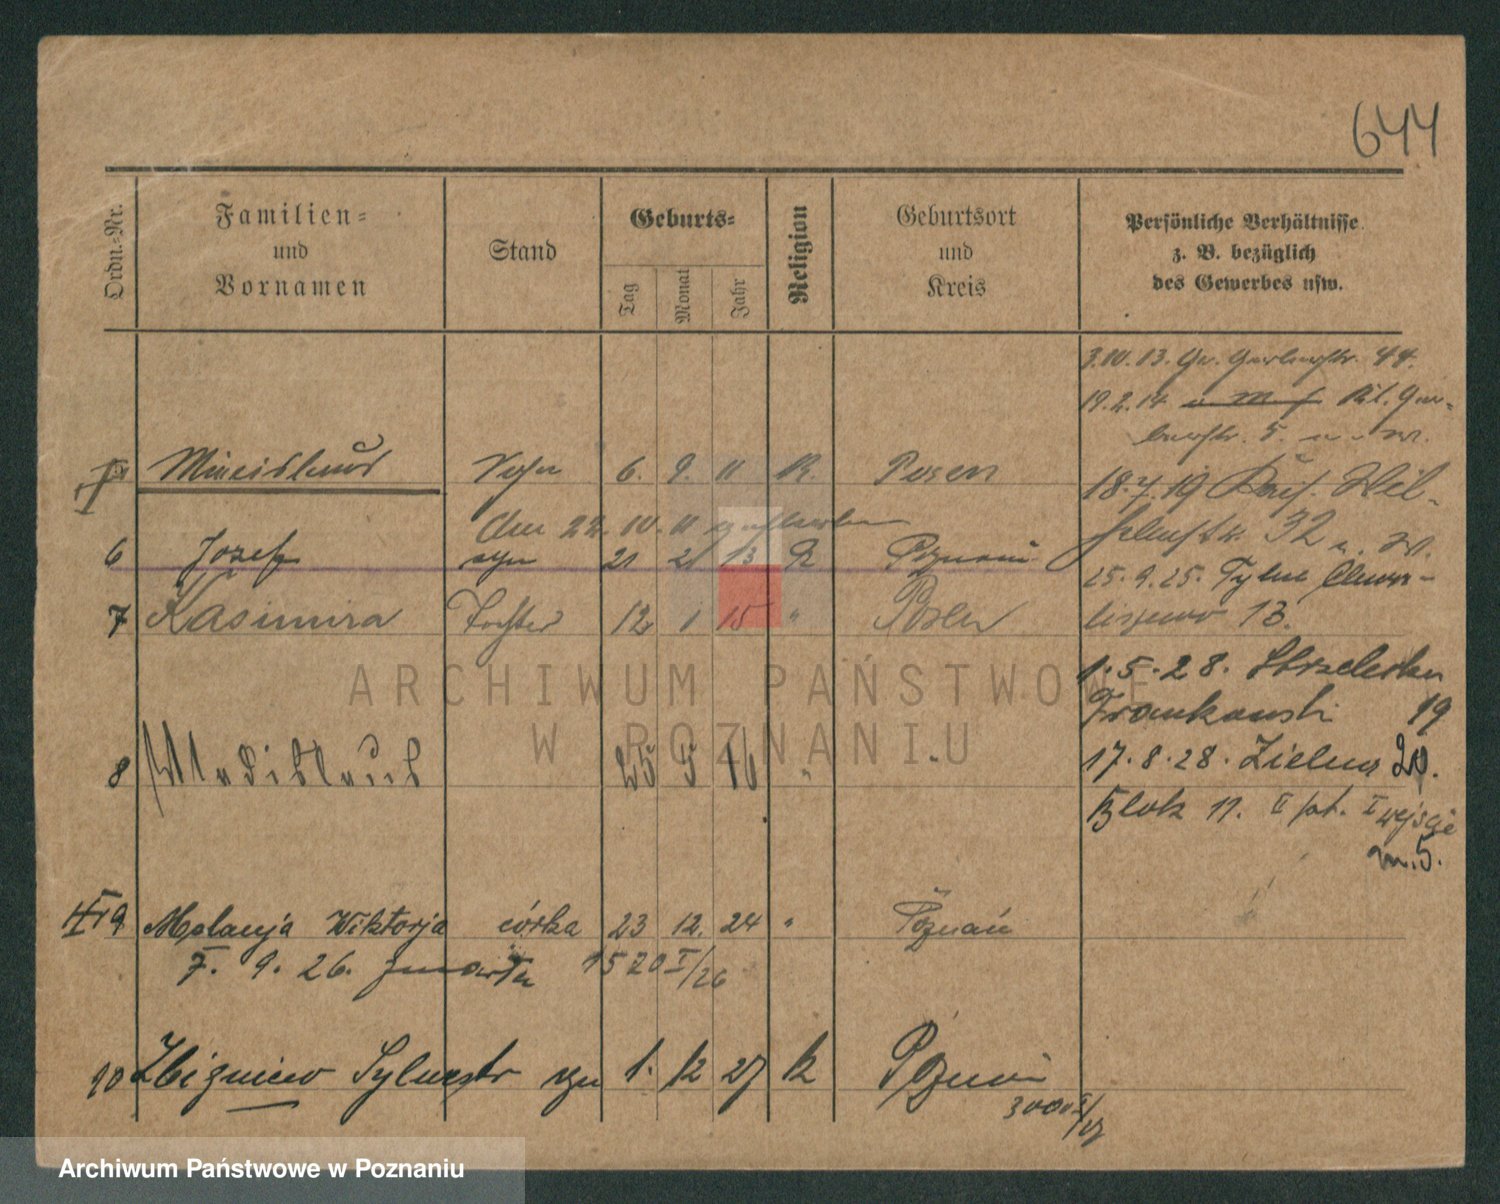 644
Ordn.-Nr.
Familien-
und
Vornamen
Stand
Geburts-
Tag
Monat
Jahr
Religion
Geburtsort
und
Kreis
Persönliche Verhältnisse
z. B. bezüglich
des Gewerbes usw.
3.10.13. Gr. Gerberstr. 44.
19.2.14
5. u. W.
Miecislaus Sohn 6. 9. 11 K. Posen
18.7.19 Wil-
den 22. 10. 11 gestorben
32 u. W.
6 Jozef syn 21 2 13 Poznań
25.9.25. Tylne Chwa-
7 Kasimira Tochter 12 1 15 " Posen
liszewo 13.
1.5.28. Strzelecka
19
17.8.28. Zielona 20.
8 Wladislaus 25 5 16 "
Blok 11. II pt. I wejście
m.5.
9 Melanja Wiktorja córka 23 12. 24 " Poznań
7. 9. 26. zmarła 1520 I/26
10 Zbigniew Sylwestr syn 1. 12 27 k Poznań
ARCHIWUM PAŃSTWOWE
W POZNANIU
Archiwum Państwowe w Poznaniu